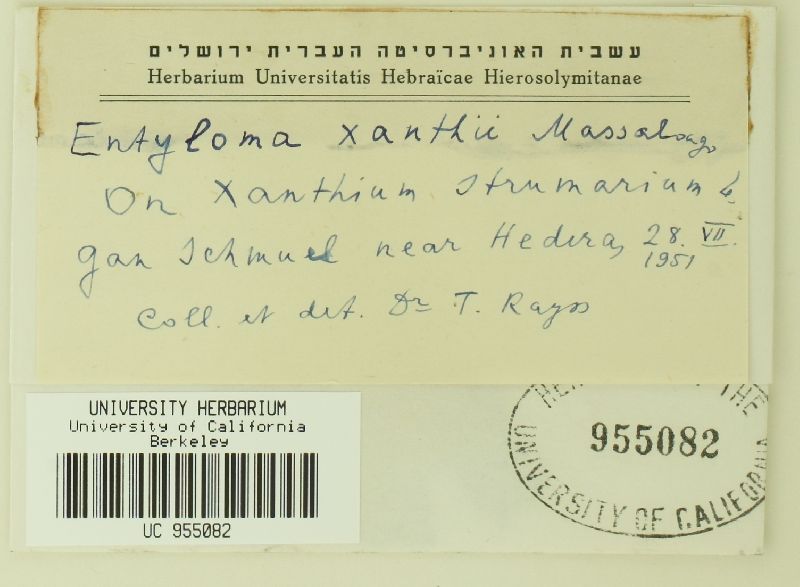 עשבית האוניברסיטה העברית ירושלים
Herbarium Universitatis Hebraïcae Hierosolymitanae
Entyloma xanthii Massalongo
On Xanthium strumarium L.
gan Schmuel near Hedera, 28. VII. 1951
Coll. et det. Dr T. Rayss
UNIVERSITY HERBARIUM
University of California
Berkeley
UC 955082
THE
955082
UNIVERSITY OF CALIFORNIA